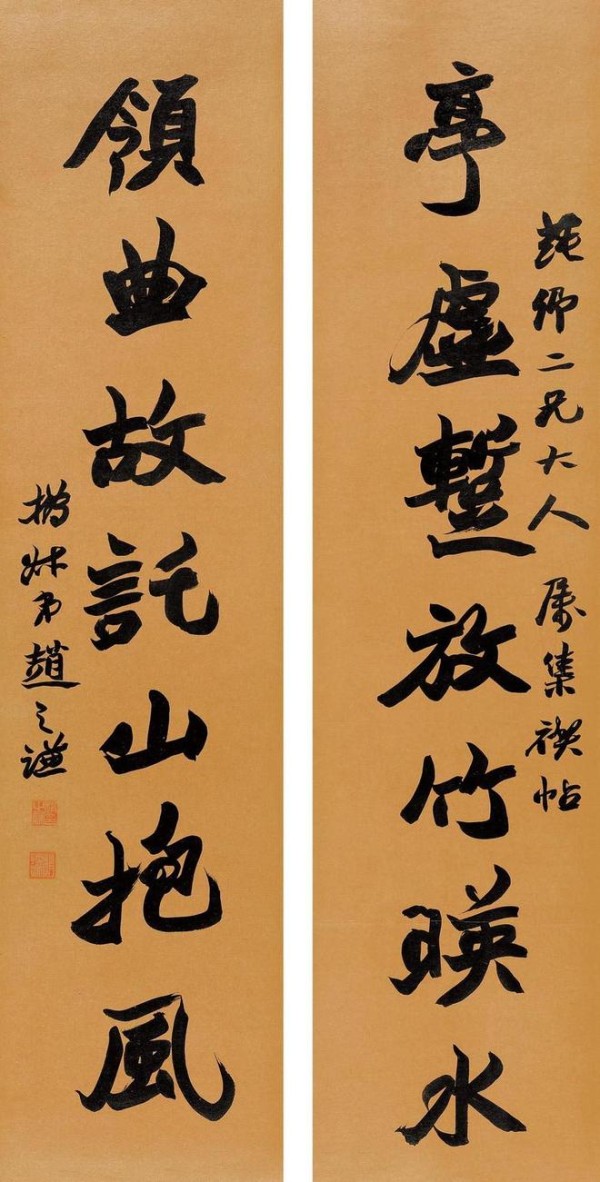 卿二兄大人 属集禊帖
亭虛蹔放竹暎水
領曲故託山抱風
撝叔弟趙之謙